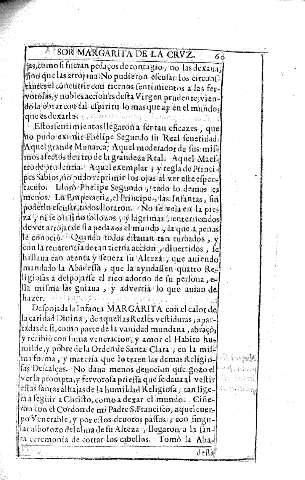 SOR MARGARITA DE LA CRVZ. 60
jas, como si fueran pedaços de contagio, no las dexaua,
sino que las arrojaua. No pudieron escusar los circuns-
tantes el concurrir con tiernos sentimientos a las fer-
vorosas, y nobles acciones desta Virgen prudente, vien-
do la obrar con tal espiritu lo mas que ay en el mundo,
que es dexarlo.
Estos sentimientos llegaron a ser tan eficazes, que
no pudo eximir Phelipe Segundo su Real serenidad
Aquel grande Monarca; Aquel moderador de sus mis-
mos afectos dentro de la grandeza Real. Aquel Maes-
tro de prudencia. Aquel exemplar, y regla de Princi-
pes Sabios, no pudo reprimir los ojos al ver este espec-
taculo. Lloró Phelipe Segundo, todo lo demas es
menos. La Emperatriz, el Principe, las Infantas, sin
poderlo escusar, todos lloraron. No se veia en la pie-
za, ni se oia sino sollozos, y lagrimas, enternecidos
de ver arrojar de si a pedazos el mundo, la que a penas
le conoció. Quando todos estauan tan turbados, y
con la terneza de tan tierna accion, diuertidos, se
hallaua tan atenta y serena su Alteza, que auiendo
mandado la Abadessa, que la ayudassen quatro Re-
ligiosas a despojarse el rico adorno de su persona, e-
lla misma las guiaua, y advertia lo que auian de
hazer.
Despojada la Infanta MARGARITA con el calor de
la caridad Diuina, de aquellas Reales vestiduras, apar-
tadas de si, como parte de la vanidad mundana, abraçó,
y recibió con suma veneracion, y amor el Habito hu-
milde, y pobre de la Orden de Santa Clara, en la mis-
ma forma, y materia que lo traen las demas Religio-
sas Descalças. No daua menos deuocion que gozo el
ver la prompta, y fervorosa priessa que se daua al vestir
estas santas alhajas de la humildad Religiosa, tan lige-
ra a seguir a Christo, como a dexar el mundo. Ciñe-
ronla con el Cordon de mi Padre S. Francisco, aquel cuer-
po Venerable, y por estos deuotos passos, con singu-
lar alborozo del alma de su Alteza, llegaron a la san-
ta ceremonia de cortar los cabellos. Tomó la Aba-
dessa